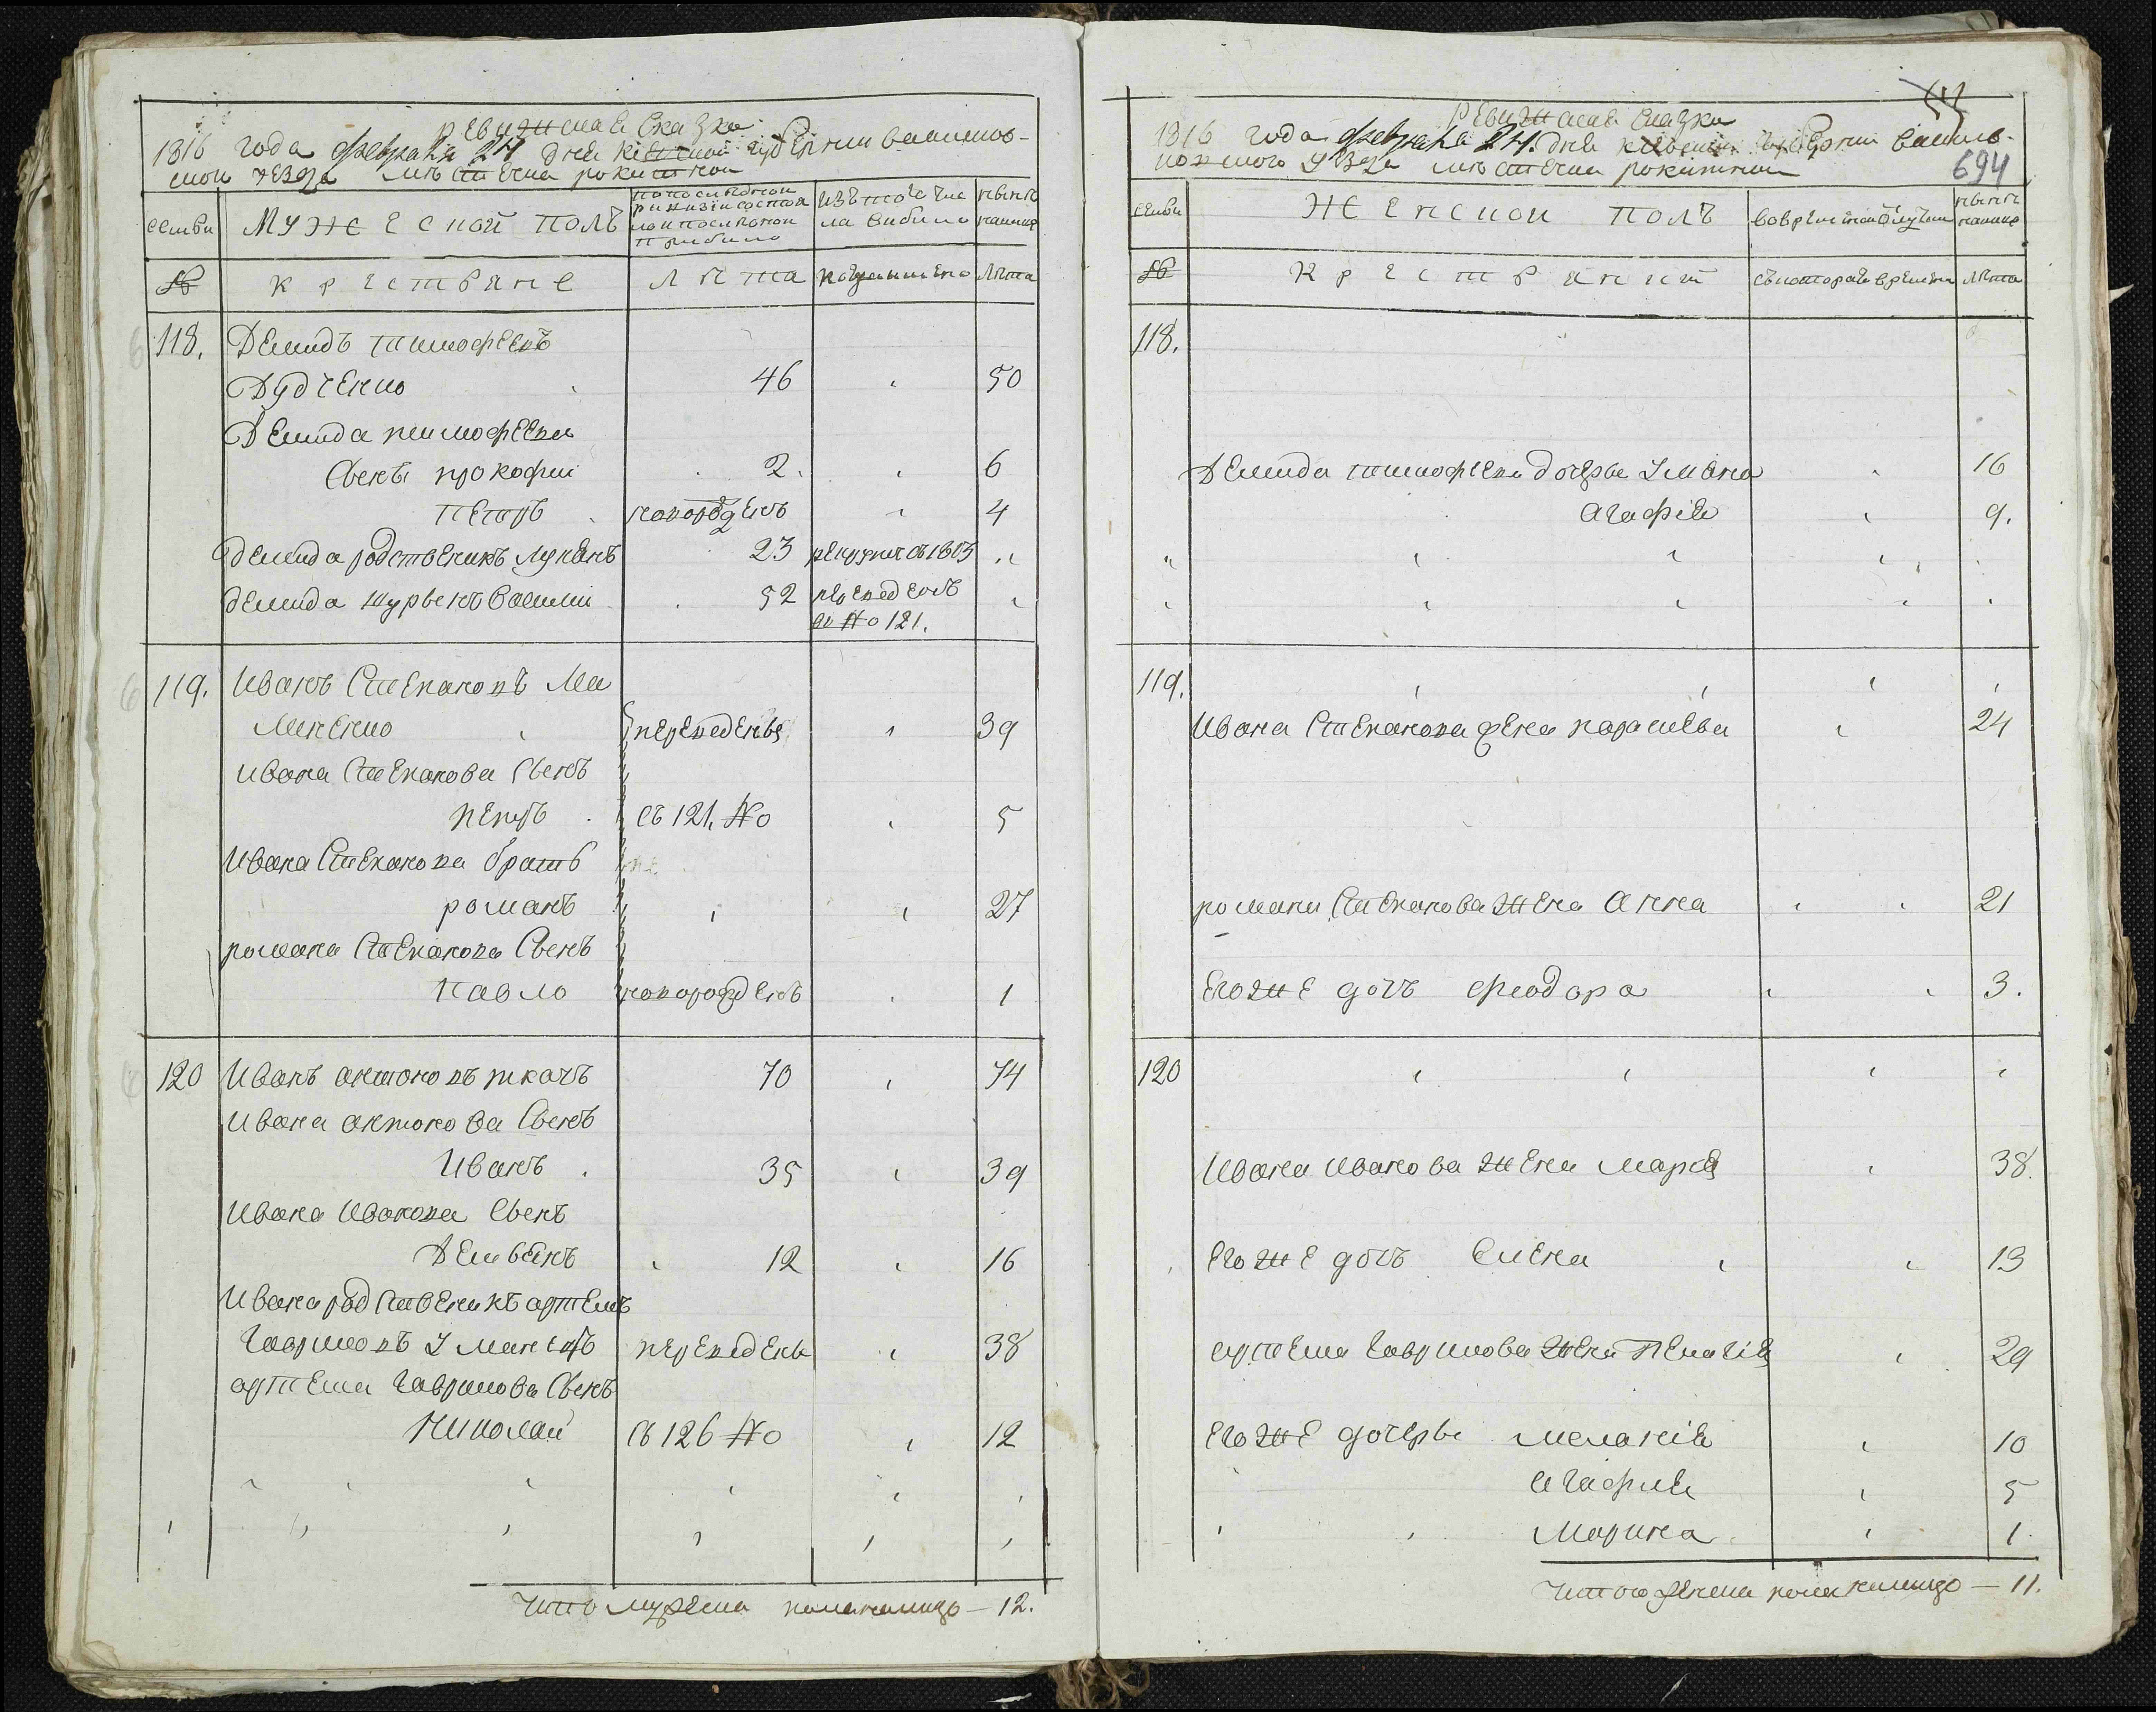 ревижская сказка
1816 года февраля 24 дня киевской губернии васильков-
ской уезда мѣстечка рокитной
семьи
мужеской полъ
по последной ревизіи состоя
ло и после оной
прибыло
изъ того чис
ла выбыло
нынѣ
налицо
№
крестьяне
лѣта
когда именно
лѣта
118.
Демидъ тимофеевъ
Дудченко 46 50
Демида тимофеева
Сынъ прокофий 2. 6
петръ новорожденъ 4
демида родственикъ лукянъ 23 рекрутъ съ 1813
демида шурьенъ Василий 52 переведенъ
во No 121.
119. Иванъ Степановъ Ма
линенко переведены 39
Ивана Степанова Сынъ
петръ съ 121. No 5
Ивана Степанова братъ
романъ 27
романа Степанова Сынъ
павло новорожденъ 1
120 Иванъ антоновъ ткачъ 70 74
Ивана антонова Сынъ
Иванъ 35 39
Ивана Иванова Сынъ
Демьянъ 12 16
Ивана родственикъ артемъ
гавриловъ Уманецъ переведены 38
артема гаврилова Сынъ
Николай Съ 126 No 12
Итого мужеска пола налицо — 12.
694
ревижская сказка
1816 года февраля 24. дня киевской губернии василь-
ковского уезда мѣстечка рокитной
семьи
женской полъ
во временной отлучки
нынѣ
налицо
№
крестьяний
съ которого времени
лѣта
118.
Демида тимофеева дочеры Ульяна 16
агафия 9.
119.
Ивана Степанова жена парасъева 24
романа Степанова жена Анна 21
Его же дочъ феодора 3.
120
Ивана Иванова жена мария 38.
Его же дочъ Елена 13
артема гаврилова жена пелагия 29
Его же дочеры мелания 10
агафия 5
марина 1.
Итого женска пола налицо — 11.